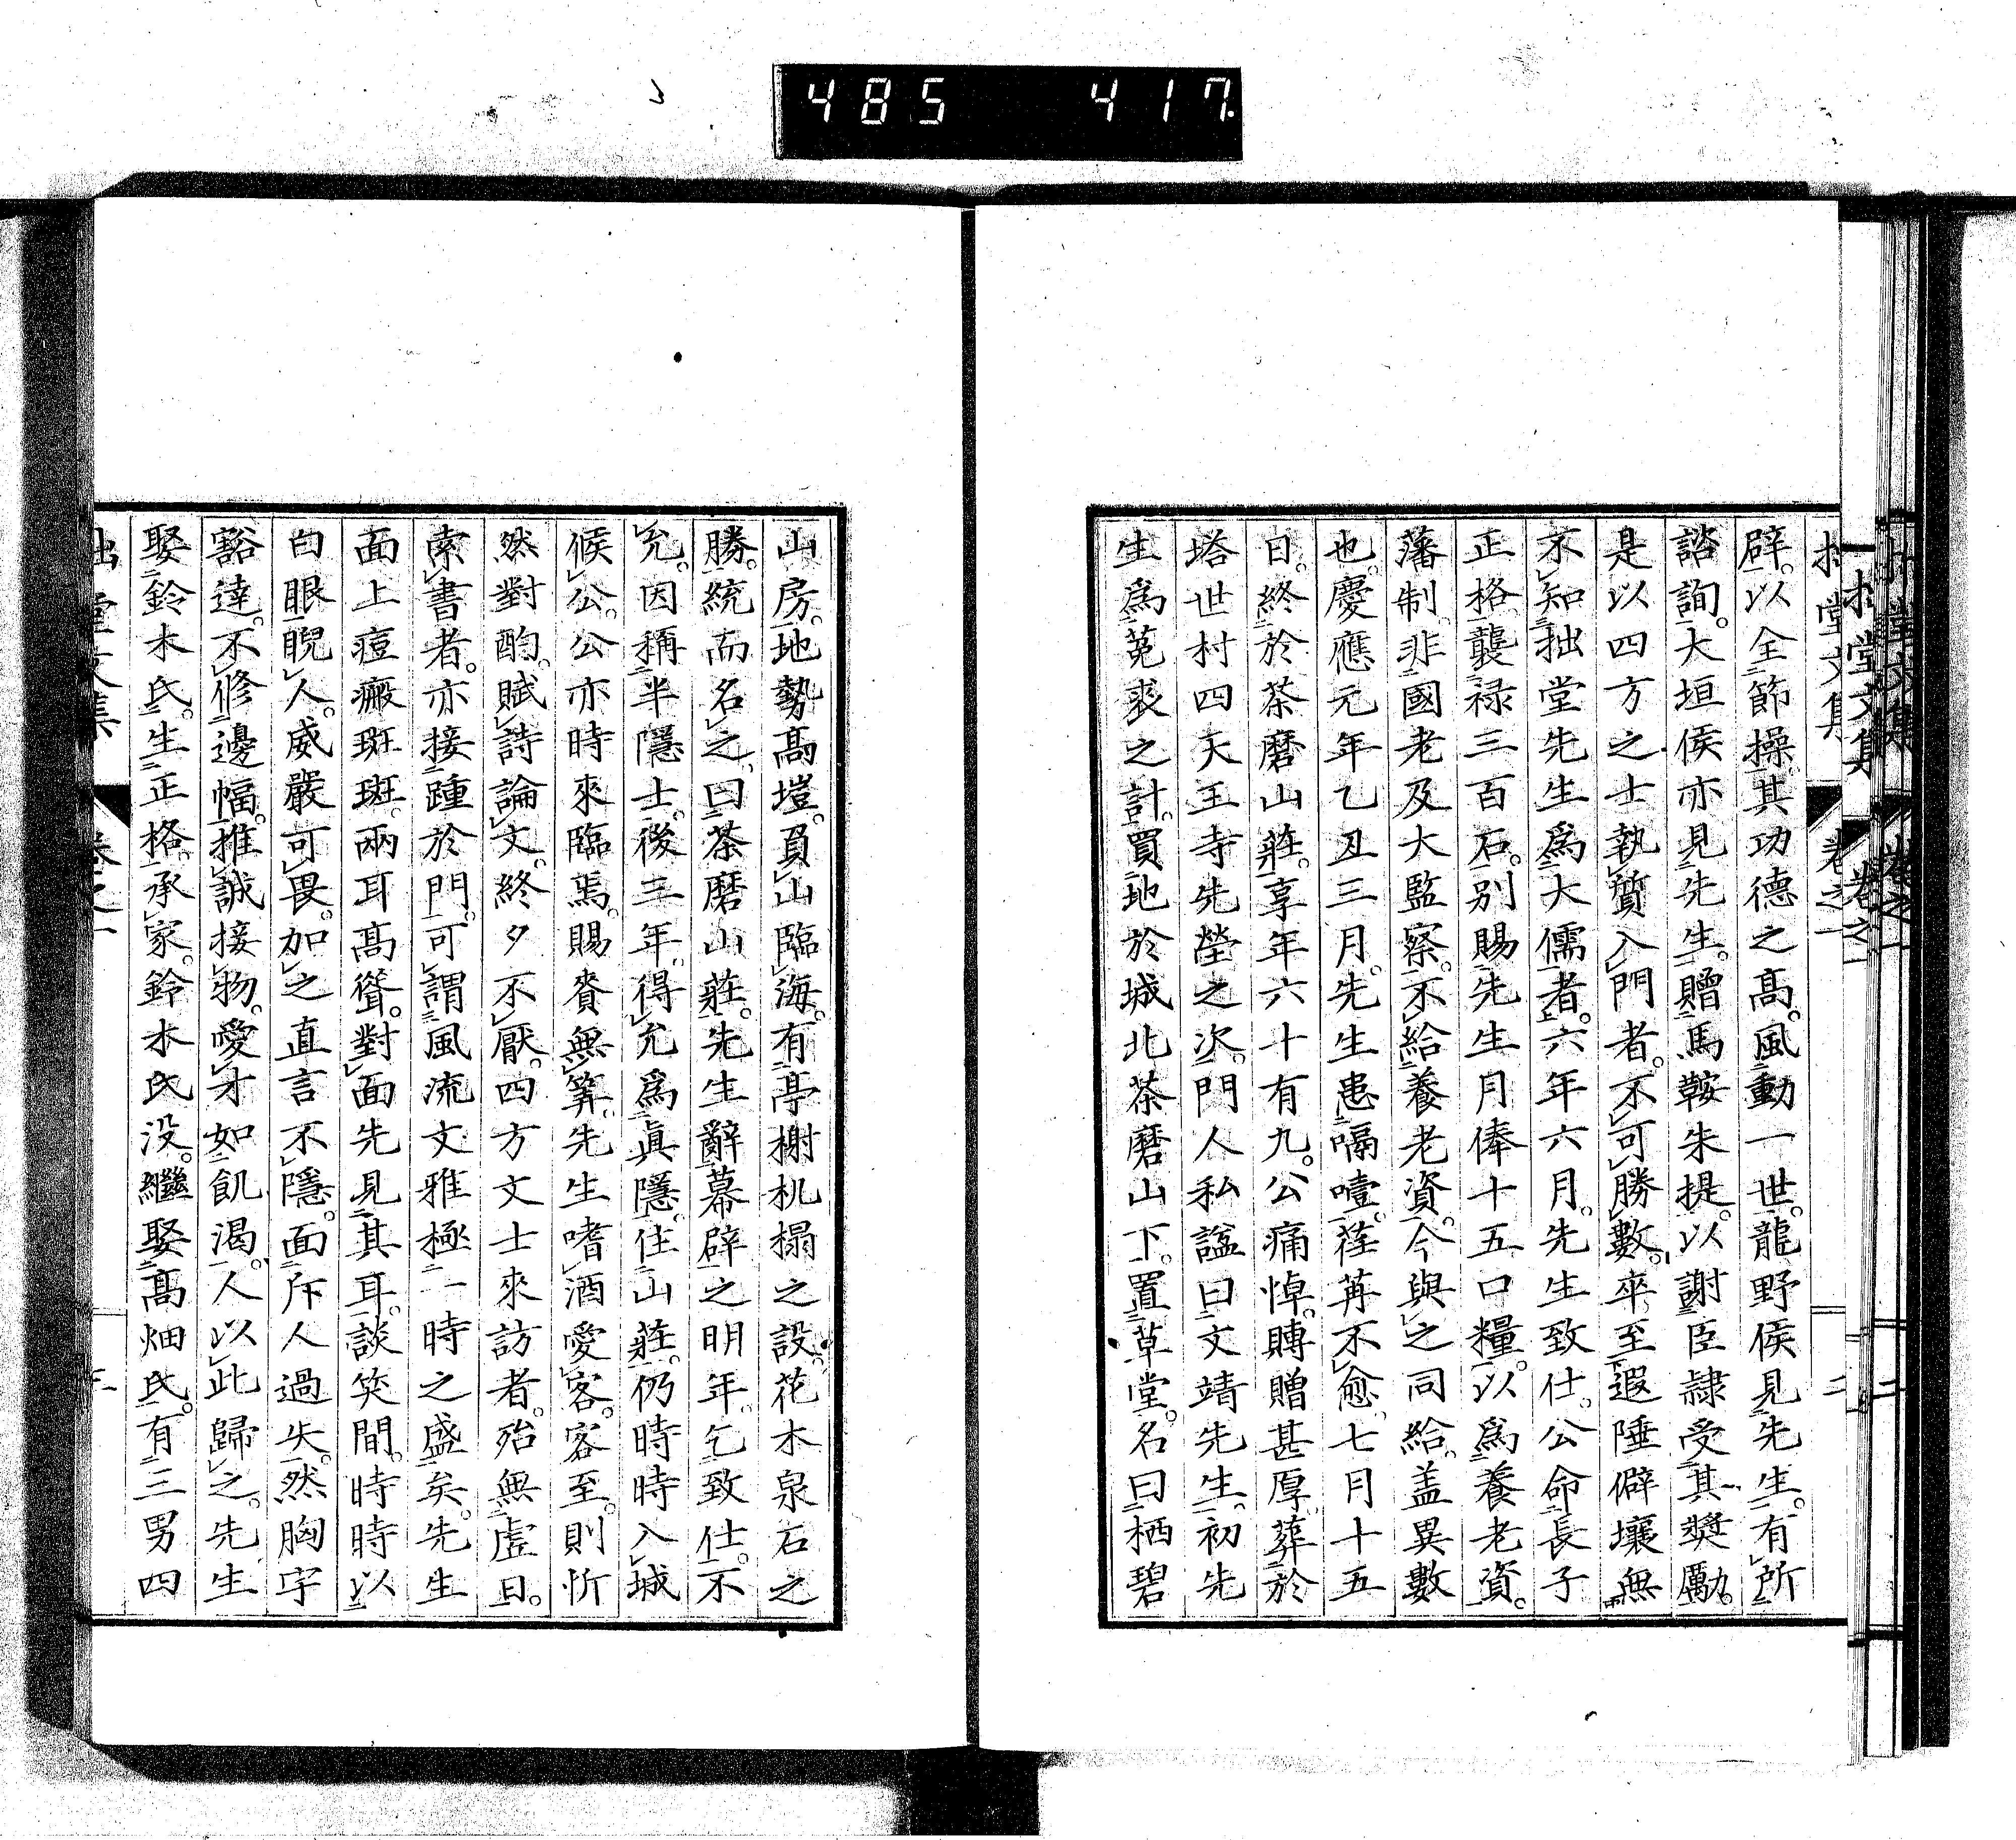 485 417
拙堂文集 卷之一 二
辟。以全節操。其功德之高。風動一世。龍野侯見先生。有所
諮詢。大垣侯亦見先生。贈馬鞍朱提。以謝臣隷受其奬勵。
是以四方之士執贄入門者。不可勝數。卒至遐陲僻壤無
不知拙堂先生爲大儒者。六年六月。先生致仕。公命長子
正格襲禄三百石。別賜先生月俸十五口糧。以爲養老資。
藩制。非國老及大監察。不給養老資。今與之同給。盖異數
也。慶應元年乙丑三月。先生患嗝噎。荏苒不愈。七月十五
日。終於茶磨山莊。享年六十有九。公痛悼。賻贈甚厚。葬於
塔世村四天王寺先塋之次。門人私諡曰文靖先生。初先
生爲菟裘之計。買地於城北茶磨山下。置草堂。名曰栖碧
山房。地勢高塏。負山臨海。有亭榭机榻之設。花木泉石之
勝。統而名之曰茶磨山莊。先生辭幕辟之明年。乞致仕。不
允。因稱半隱士。後三年。得允爲眞隱。住山莊。仍時時入城
候公。公亦時來臨焉。賜賚無筭。先生嗜酒愛客。客至。則忻
然對酌。賦詩論文。終夕不厭。四方文士來訪者。殆無虚日。
索書者。亦接踵於門。可謂風流文雅極一時之盛矣。先生
面上痘瘢斑斑。兩耳高聳。對面先見其耳。談笑間。時時以
白眼睨人。威嚴可畏。加之直言不隱。面斥人過失。然胸宇
豁達。不修邊幅。推誠接物。愛才如飢渴。人以此歸之。先生
娶鈴木氏。生正格。承家。鈴木氏没。繼娶高畑氏。有三男四
拙堂文集 卷之一 三